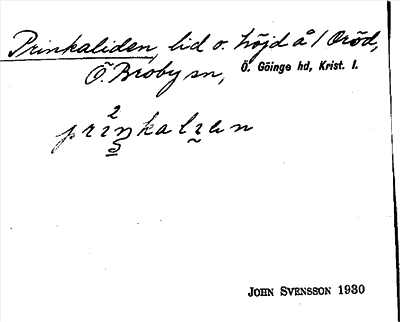 Prinkaliden, lid o. höjd å / Oröd,
Ö. Broby sn, Ö. Göinge hd, Krist. l.
2
prinkalien
JOHN SVENSSON 1930